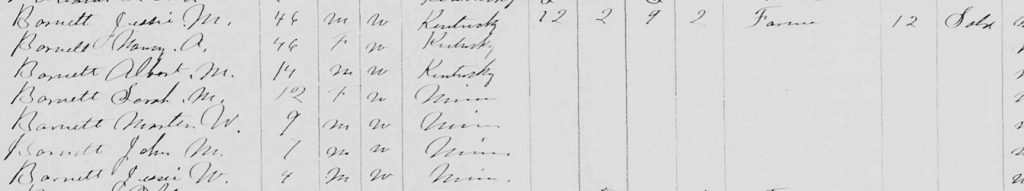 Barnett Jessie. M. 46 m w Kentucky 12 2 9 2 Farmer 12 Sold
Barnett Nancy. A. 46 F w Kentucky
Barnett Albert. M. 14 m w Kentucky
Barnett Sarah. M. 12 F w Minn
Barnett Marten. W. 9 m w Minn
Barnett John M. 1 m w Minn.
Barnett Jessie W. 4 m w Minn.